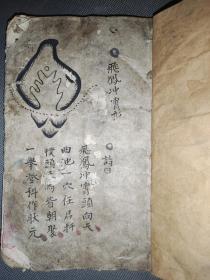 飛鳳冲霄形
詩曰
飛鳳冲霄頭向天
曲池一穴任君扦
頭皆朝聚
一舉登科作狀元